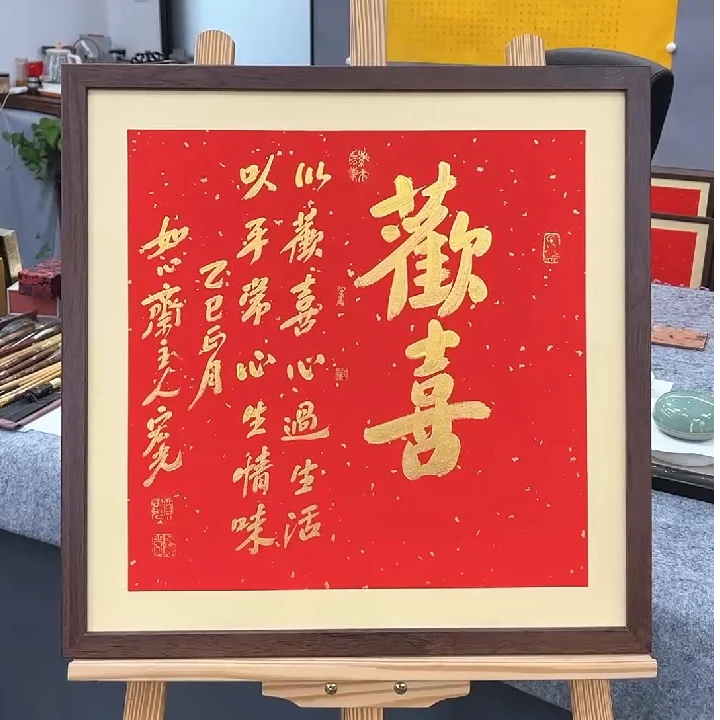 歡喜
以歡喜心過生活
以平常心生情味
乙巳正月
如心齋主人宏光